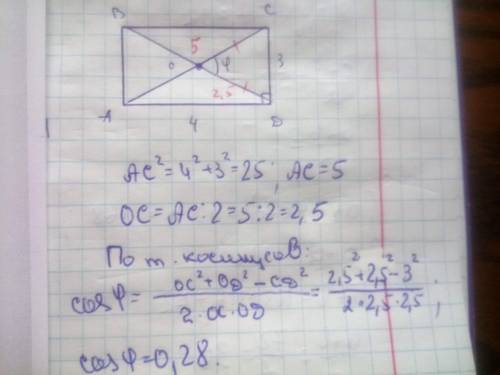 B C
5
O φ 3
2,5
A D
4
AC² = 4² + 3² = 25; AC = 5
OC = AC : 2 = 5 : 2 = 2,5
По т. косинусов:
cosφ = (OC² + OD² - CD²) / (2 · OC · OD) = (2,5² + 2,5² - 3²) / (2 · 2,5 · 2,5);
cosφ = 0,28.